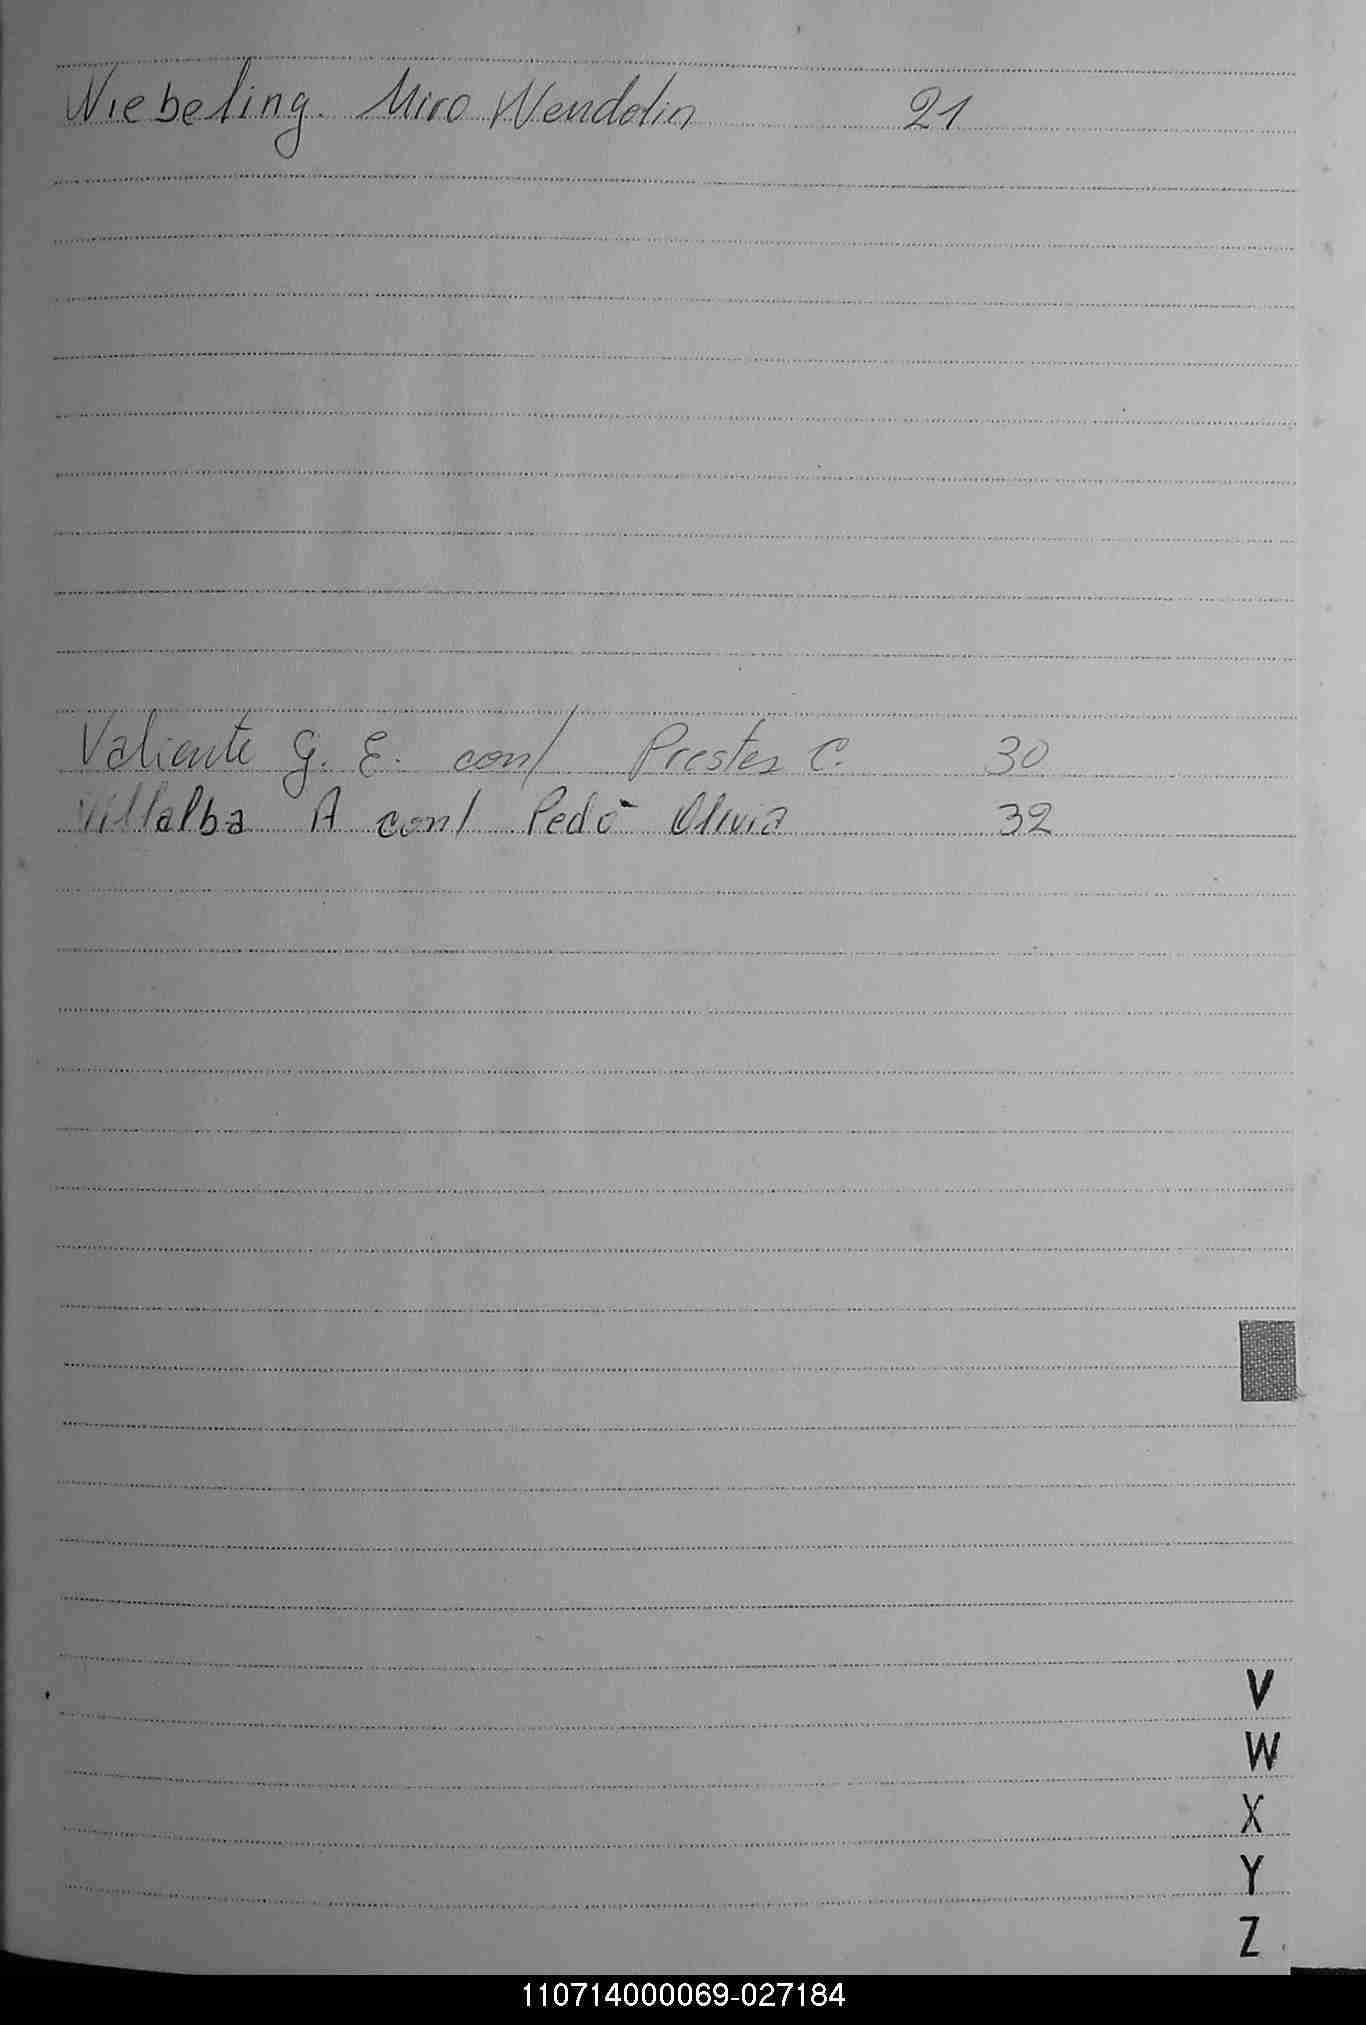 Niebeling. Miro Wendolin 21
Valiente G. E. con/ Prestes C. 30
Villalba A con/ Pedó Olivia 32
V
W
X
Y
Z
110714000069-027184